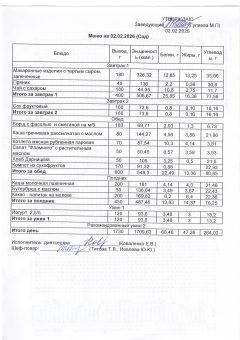 УТВЕРЖДАЮ
Заведующий
02.02.2026
Меню на 02.02.2026 (Сад)
Блюдо Выход, г Эн.ценность (ккал.) Белки, г Жиры, г Углеводы, г
Завтрак 1
Макаронные изделия с тертым сыром, запеченные 180 326,32 12,85 13,25 35,06
Пряник 40 136 2,2 0,36 30,8
Чай с сахаром 180 44,35 10,8 2,75 11,7
Итого за завтрак 1 400 506,67 25,85 16,36 77,56
Завтрак 2
Сок фруктовый 160 73,6 0,8 0,16 16,16
Итого за завтрак 2 160 73,6 0,8 0,16 16,16
Обед
Борщ с фасолью и сметаной на м/б 180 69,71 2,03 1,3 6,73
Каша гречневая рассыпчатая с маслом 80 144,27 4,98 3,88 21,96
Котлета мясная рубленная паровая 70 87,54 10,3 4,14 3,81
Салат "Мозаика" с растительным маслом 50 50,45 0,57 3,59 3,93
Хлеб Дарницкий 50 105 3,25 0,5 21,5
Компот из сухофруктов 170 91,32 22,92
Итого за обед 600 548,3 22,49 13,36 80,85
Полдник
Каша молочная пшеничная 200 181 4,14 4,3 31,46
Бутерброд с маслом 50 136,64 3,49 3,67 22,43
Какао - напиток на молоке 200 169,82 6,2 6,4 22,38
Итого за полдник 450 487,46 13,83 14,37 76,25
Ужин 1
Йогурт 2,5% 120 93,6 3,48 3 13,2
Итого за ужин 1 120 93,6 3,48 3 13,2
Рекомендованный ужин 2
Итого день 1730 1709,63 66,46 47,26 264,02
Исполнитель: диетсестра (Коваленко Е.В.)
Шеф-повар: